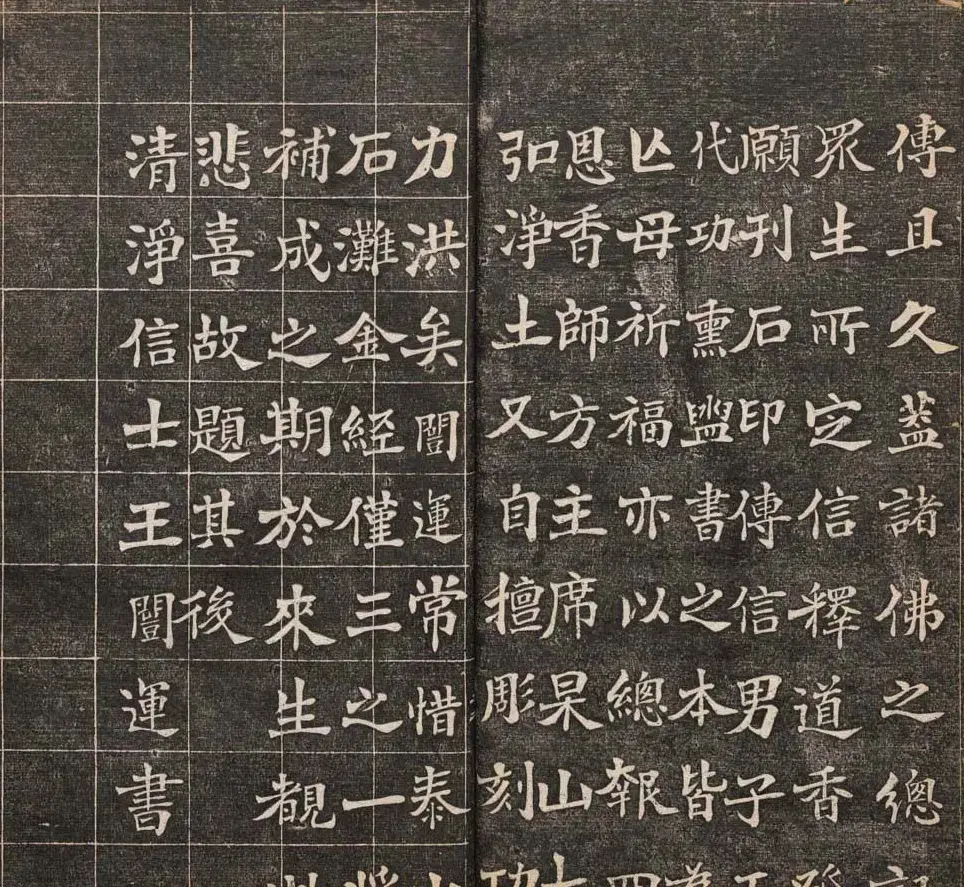 傳且久葢諸佛之總
眾生所定信釋道香
願刊石印傳信男子
代功熏盥書之本皆為
亾母祈福亦以總報四
恩香師方主席杲山
弘淨土又自擅彫刻功
力洪矣闓運常惜泰山
石灘金經僅三之一將
補成之期於來生覩
悲喜故題其後
清淨信士王闓運書